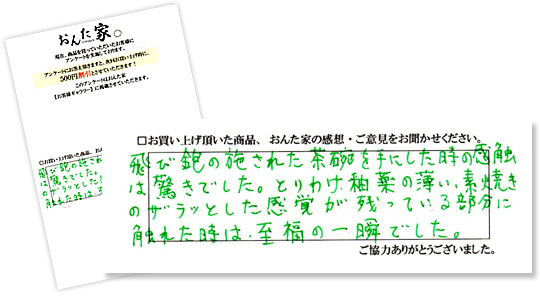 おんた家
現在、商品を買っていただいたお客様に
アンケートを実施しております。
アンケートにお答え頂きますと、次回お買い上げ時に、
500円割引とさせていただきます!
このアンケートはおんた家
【お客様ギャラリー】に掲載させていただきます。
□お買い上げ頂いた商品、おんた家の感想・ご意見をお聞かせください。
飛び鉋の施された茶碗を手にした時の感触
は驚きでした。とりわけ釉薬の薄い、素焼き
のザラッとした感覚が残っている部分に
触れた時は、至福の一瞬でした。
ご協力ありがとうございました。